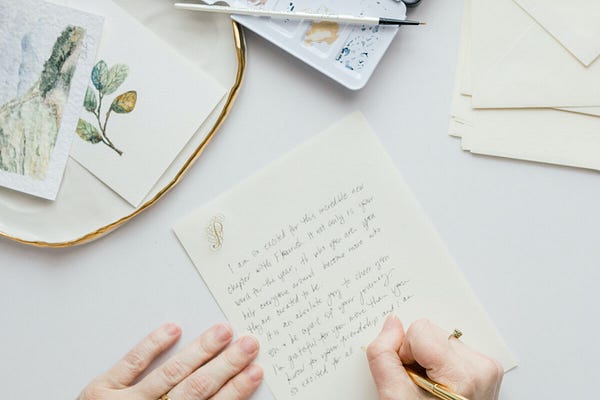 I am so excited for this incredible new
chapter with Flourish. It not only is your
word for the year, it's who you are. You
help everyone around become more who
they are created to be.
It is an absolute joy to cheer you
on & be apart of your journey.
I'm grateful for you more than you
know for your friendship and I am
so excited for all